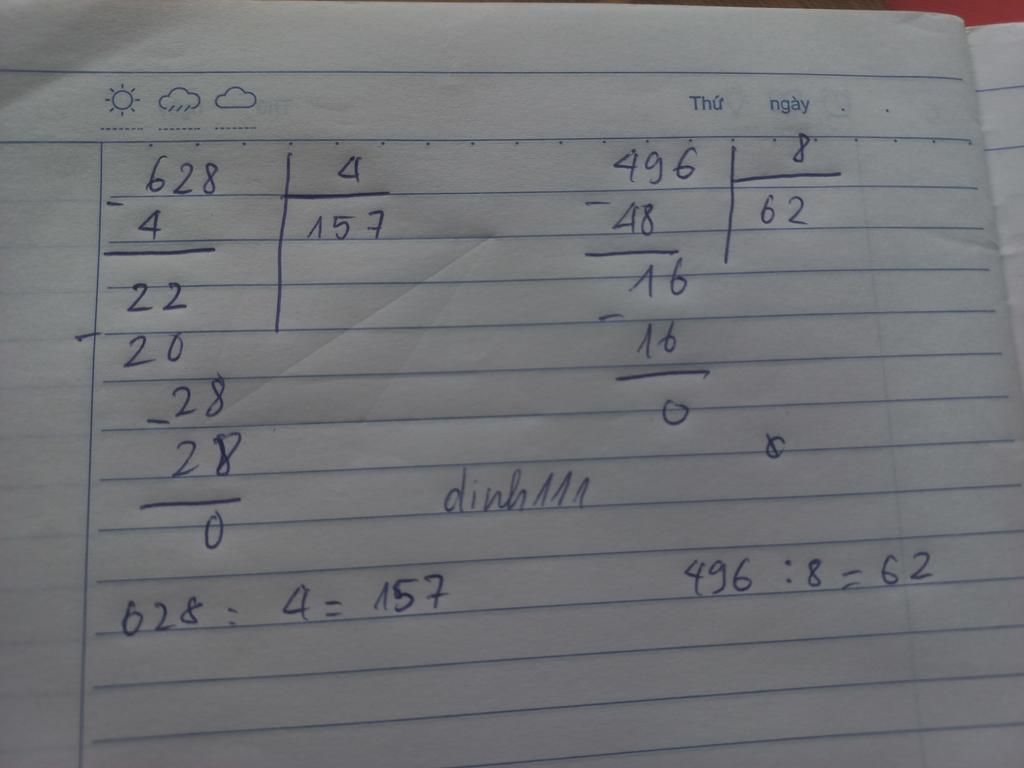 Thứ ngày . .
628 4
- 4 157
22
- 20
- 28
28
0
628 : 4 = 157
496 8
- 48 62
16
- 16
0
dinh111
496 : 8 = 62